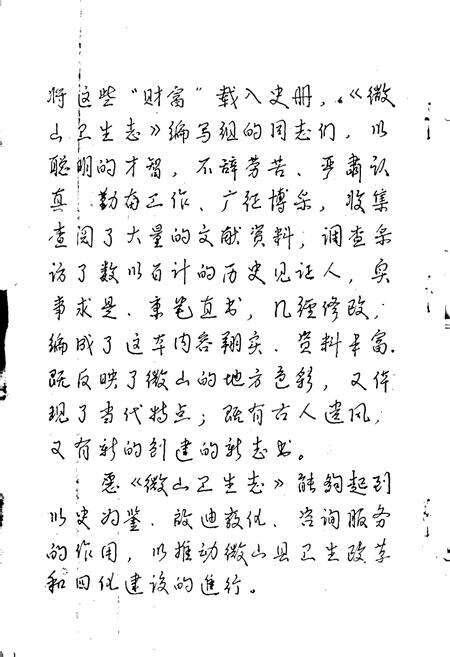 将这些“财富”载入史册，《微
山卫生志》编写组的同志们，以
聪明的才智，不辞劳苦、严肃认
真、勤奋工作、广征博采，收集
查阅了大量的文献资料；调查采
访了数以百计的历史见证人，实
事求是、秉笔直书，几经修改，
编成了这本内容翔实、资料丰富、
既反映了微山的地方色彩，又体
现了当代特点；既有古人遗风，
又有新的创建的新志书。
愿《微山卫生志》能够起到
以史为鉴、啟迪教化、咨询服务
的作用，以推动微山县卫生改革
和四化建设的進行。